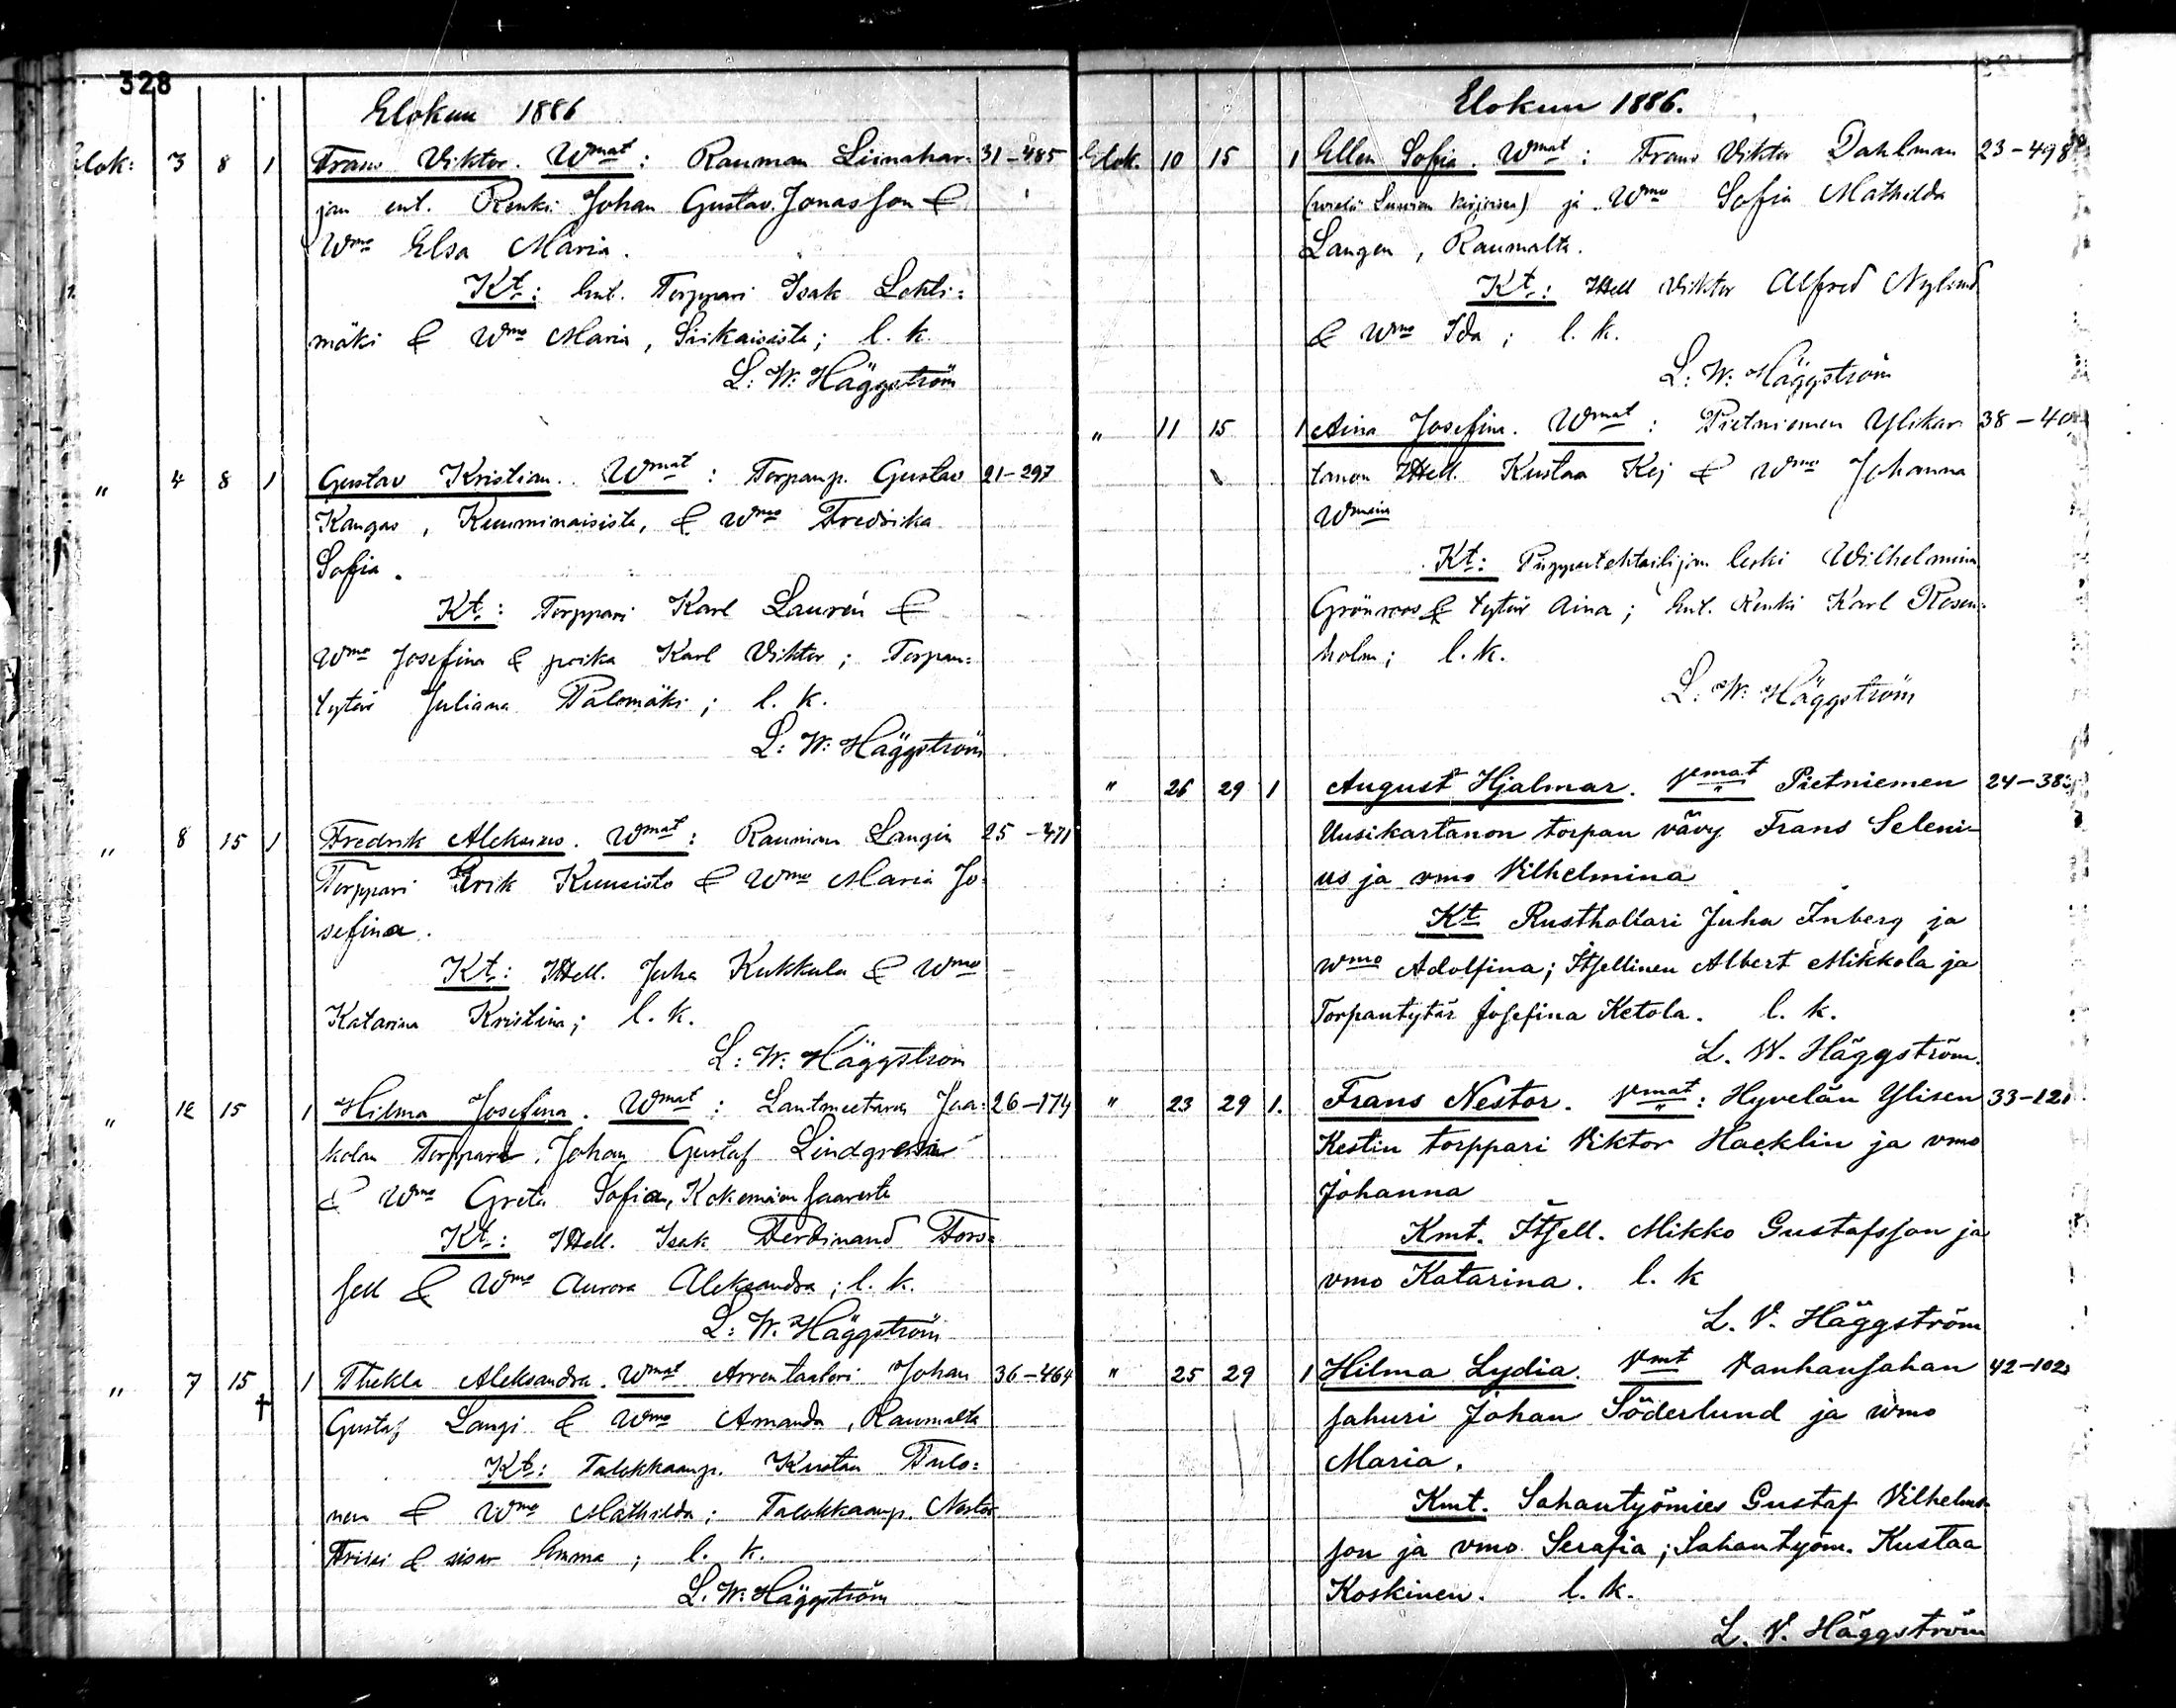 328
Elokuu 1886
Elok: 3 8 1 Frans Viktor. Wmat: Rauman Liinahar- 31-485
jan ent. Renki Johan Gustav Jonasson &
Wmo Elsa Maria.
Kt: Ent. Torppari Isak Lehti=
mäki & Wmo Maria, Siikaisista; l. k.
L: W: Häggström
" 4 8 1 Gustav Kristian. Wmat: Torpanp. Gustav 21-297
Kangas, Kuuminaisista, & Wmo Fredrika
Sofia.
Kt: Torppari Karl Laurén &
Wmo Josefina & poika Karl Viktor; Torpan=
tytär Juliana Palomäki; l. k.
L: W: Häggström
" 8 15 1 Fredrik Aleksius. Wmat: Rauman Langin 25-471
Torppari Erik Kuusisto & Wmo Maria Jo-
sefina.
Kt: Itsell. Juha Kukkula & Wmo
Katarina Kristina; l. k.
L: W: Häggström
" 12 15 1 Hilma Josefina. Wmat: Lantmeetarin Jaa- 26-174
kolan Torppari Johan Gustaf Lindgren
& Wmo Greta Sofia, Kokemäen Saaresta
Kt: Itsell. Isak Ferdinand Fors=
sell & Wmo Aurora Aleksandra; l. k.
L: W. Häggström
" 7 15 † 1 Thekla Aleksandra. Wmat Arrentaatori Johan 36-464
Gustaf Langi & Wmo Amanda, Raumalta
Kt: Talokkaanp. Kustaa Tulo=
nen & Wmo Mathilda; Talokkaanp. Nestor
Friisi & sisar Emma; l. k.
L. W: Häggström
Elokuu 1886.
Elok. 10 15 1 Ellen Sofia. Wmat: Frans Viktor Dahlman 23-498
(wielä Luvian kirjoissa) ja Wmo Sofia Mathilda
Langen, Raumalta.
Kt: Itsell Viktor Alfred Nylund
& Wmo Ida; l. k.
L: W: Häggström
" 11 15 1 Aina Josefina. Wmat: Pietniemen Ylikar- 38-40
tanon Itsell. Kustaa Kej & Wmo Johanna
Kt: Piipputehtailijan leski Wilhelmina
Grönroos & tytär Aina; Ent. Renki Karl Rosen=
holm; l. k.
L. W: Häggström
" 26 29 1 August Hjalmar. Vmat Pietniemen 24-38
Uusikartanon torpan vävy Frans Seleni-
us ja vmo Vilhelmina
Kt Rusthollari Juha Inberg ja
wmo Adolfina; Itsellinen Albert Mikkola ja
Torpantytär Josefina Ketola. l. k.
L. W. Häggström.
" 23 29 1. Frans Nestor. Vmat: Hyvelän Ylisen 33-121
Kestin torppari Viktor Hacklin ja vmo
Johanna
Kmt. Itsell. Mikko Gustafsson ja
vmo Katarina. l. k
L. V. Häggström
" 25 29 1 Hilma Lydia. Vmt Vanhansahan 42-102
sahuri Johan Söderlund ja wmo
Maria.
Kmt. Sahantyömies Gustaf Vilhelms-
son ja vmo Serafia; Sahantyöm. Kustaa
Koskinen. l. k.
L. V. Häggström